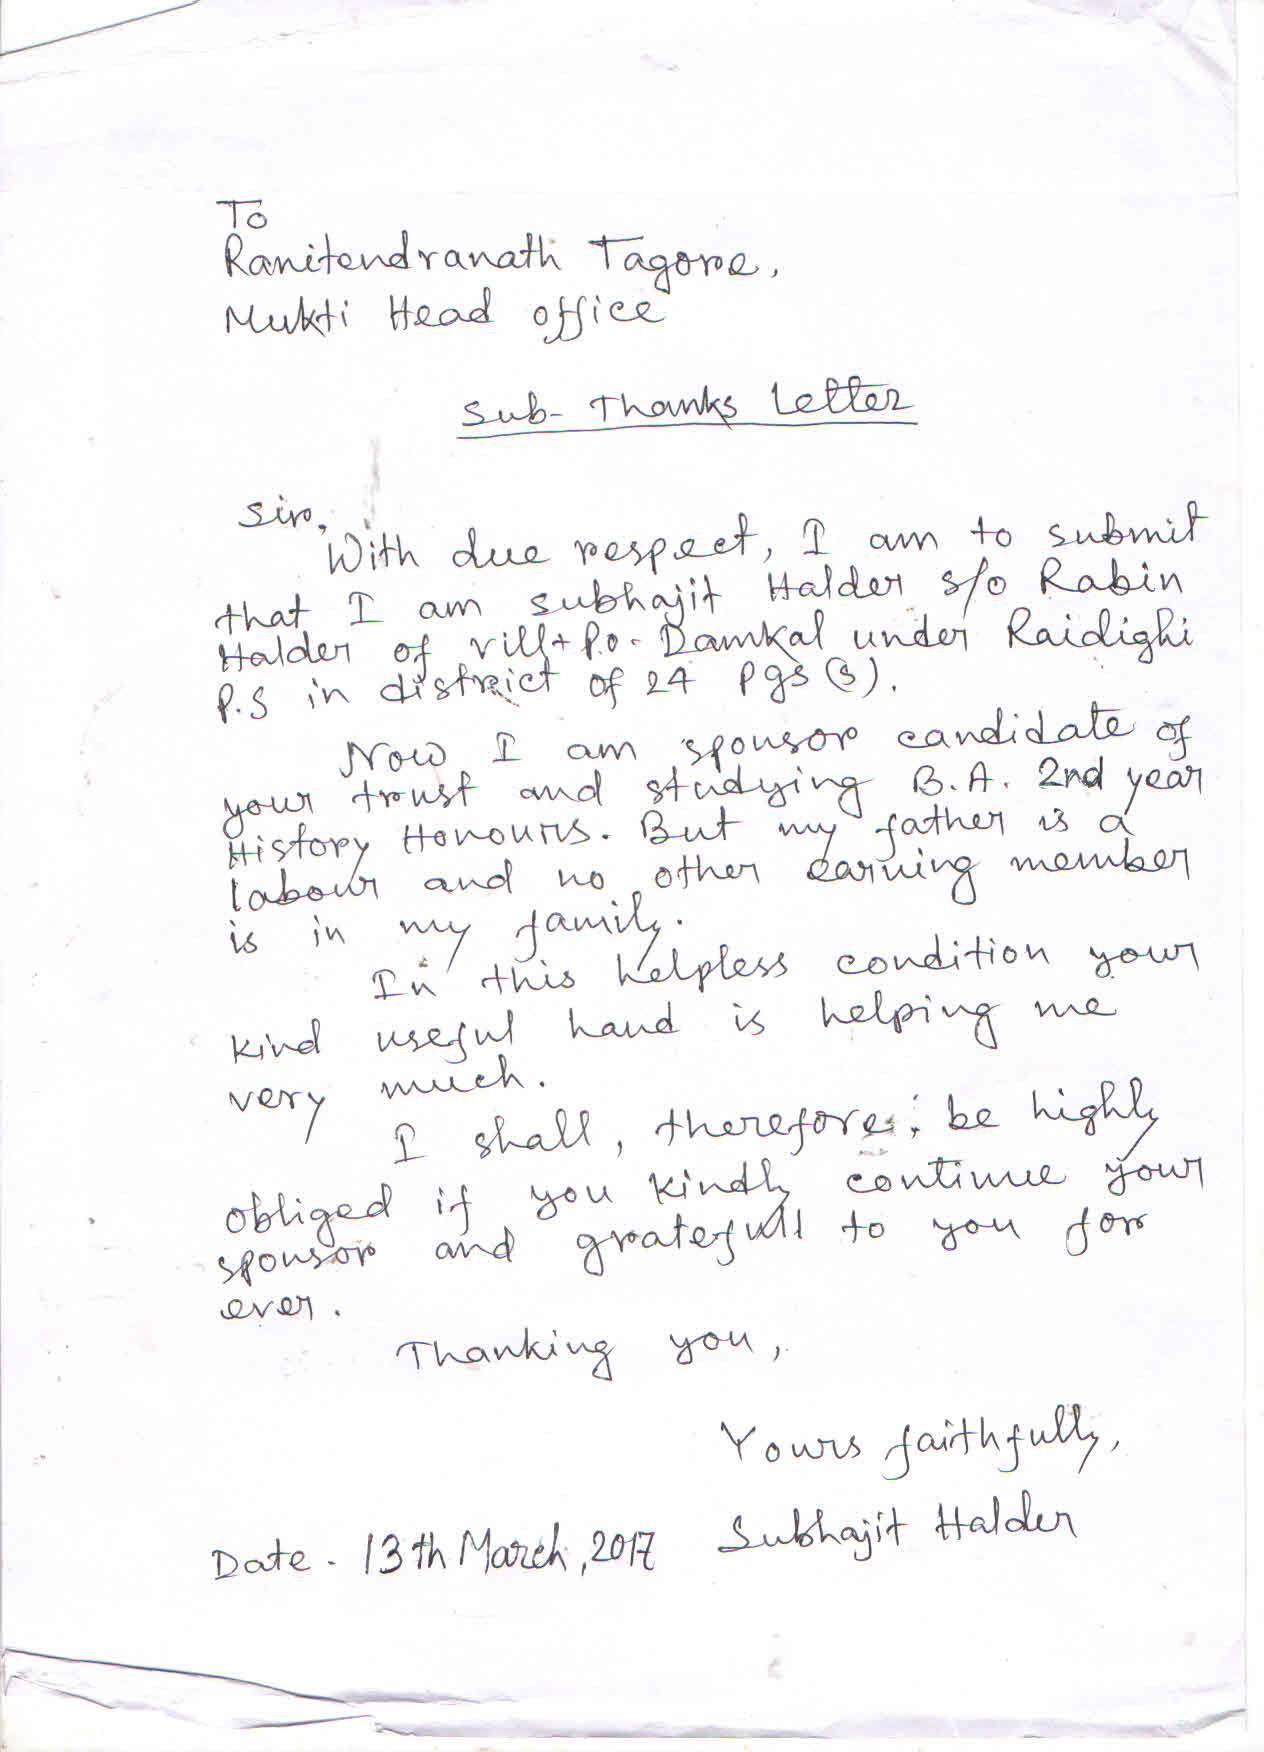 To
Ranitendranath Tagore,
Mukti Head office
Sub- Thanks Letter
Sir,
With due respect, I am to submit
that I am subhajit Halder s/o Rabin
Halder of vill+P.o- Damkal under Raidighi
P.S in district of 24 Pgs (s).
Now I am sponsor candidate of
your trust and studying B.A. 2nd year
History Honours. But my father is a
labour and no other earning member
is in my family.
In this helpless condition your
kind useful hand is helping me
very much.
I shall, therefore, be highly
obliged if you kindly continue your
sponsor and gratefull to you for
ever.
Thanking you,
Yours faithfully,
Subhajit Halder
Date - 13th March, 2017